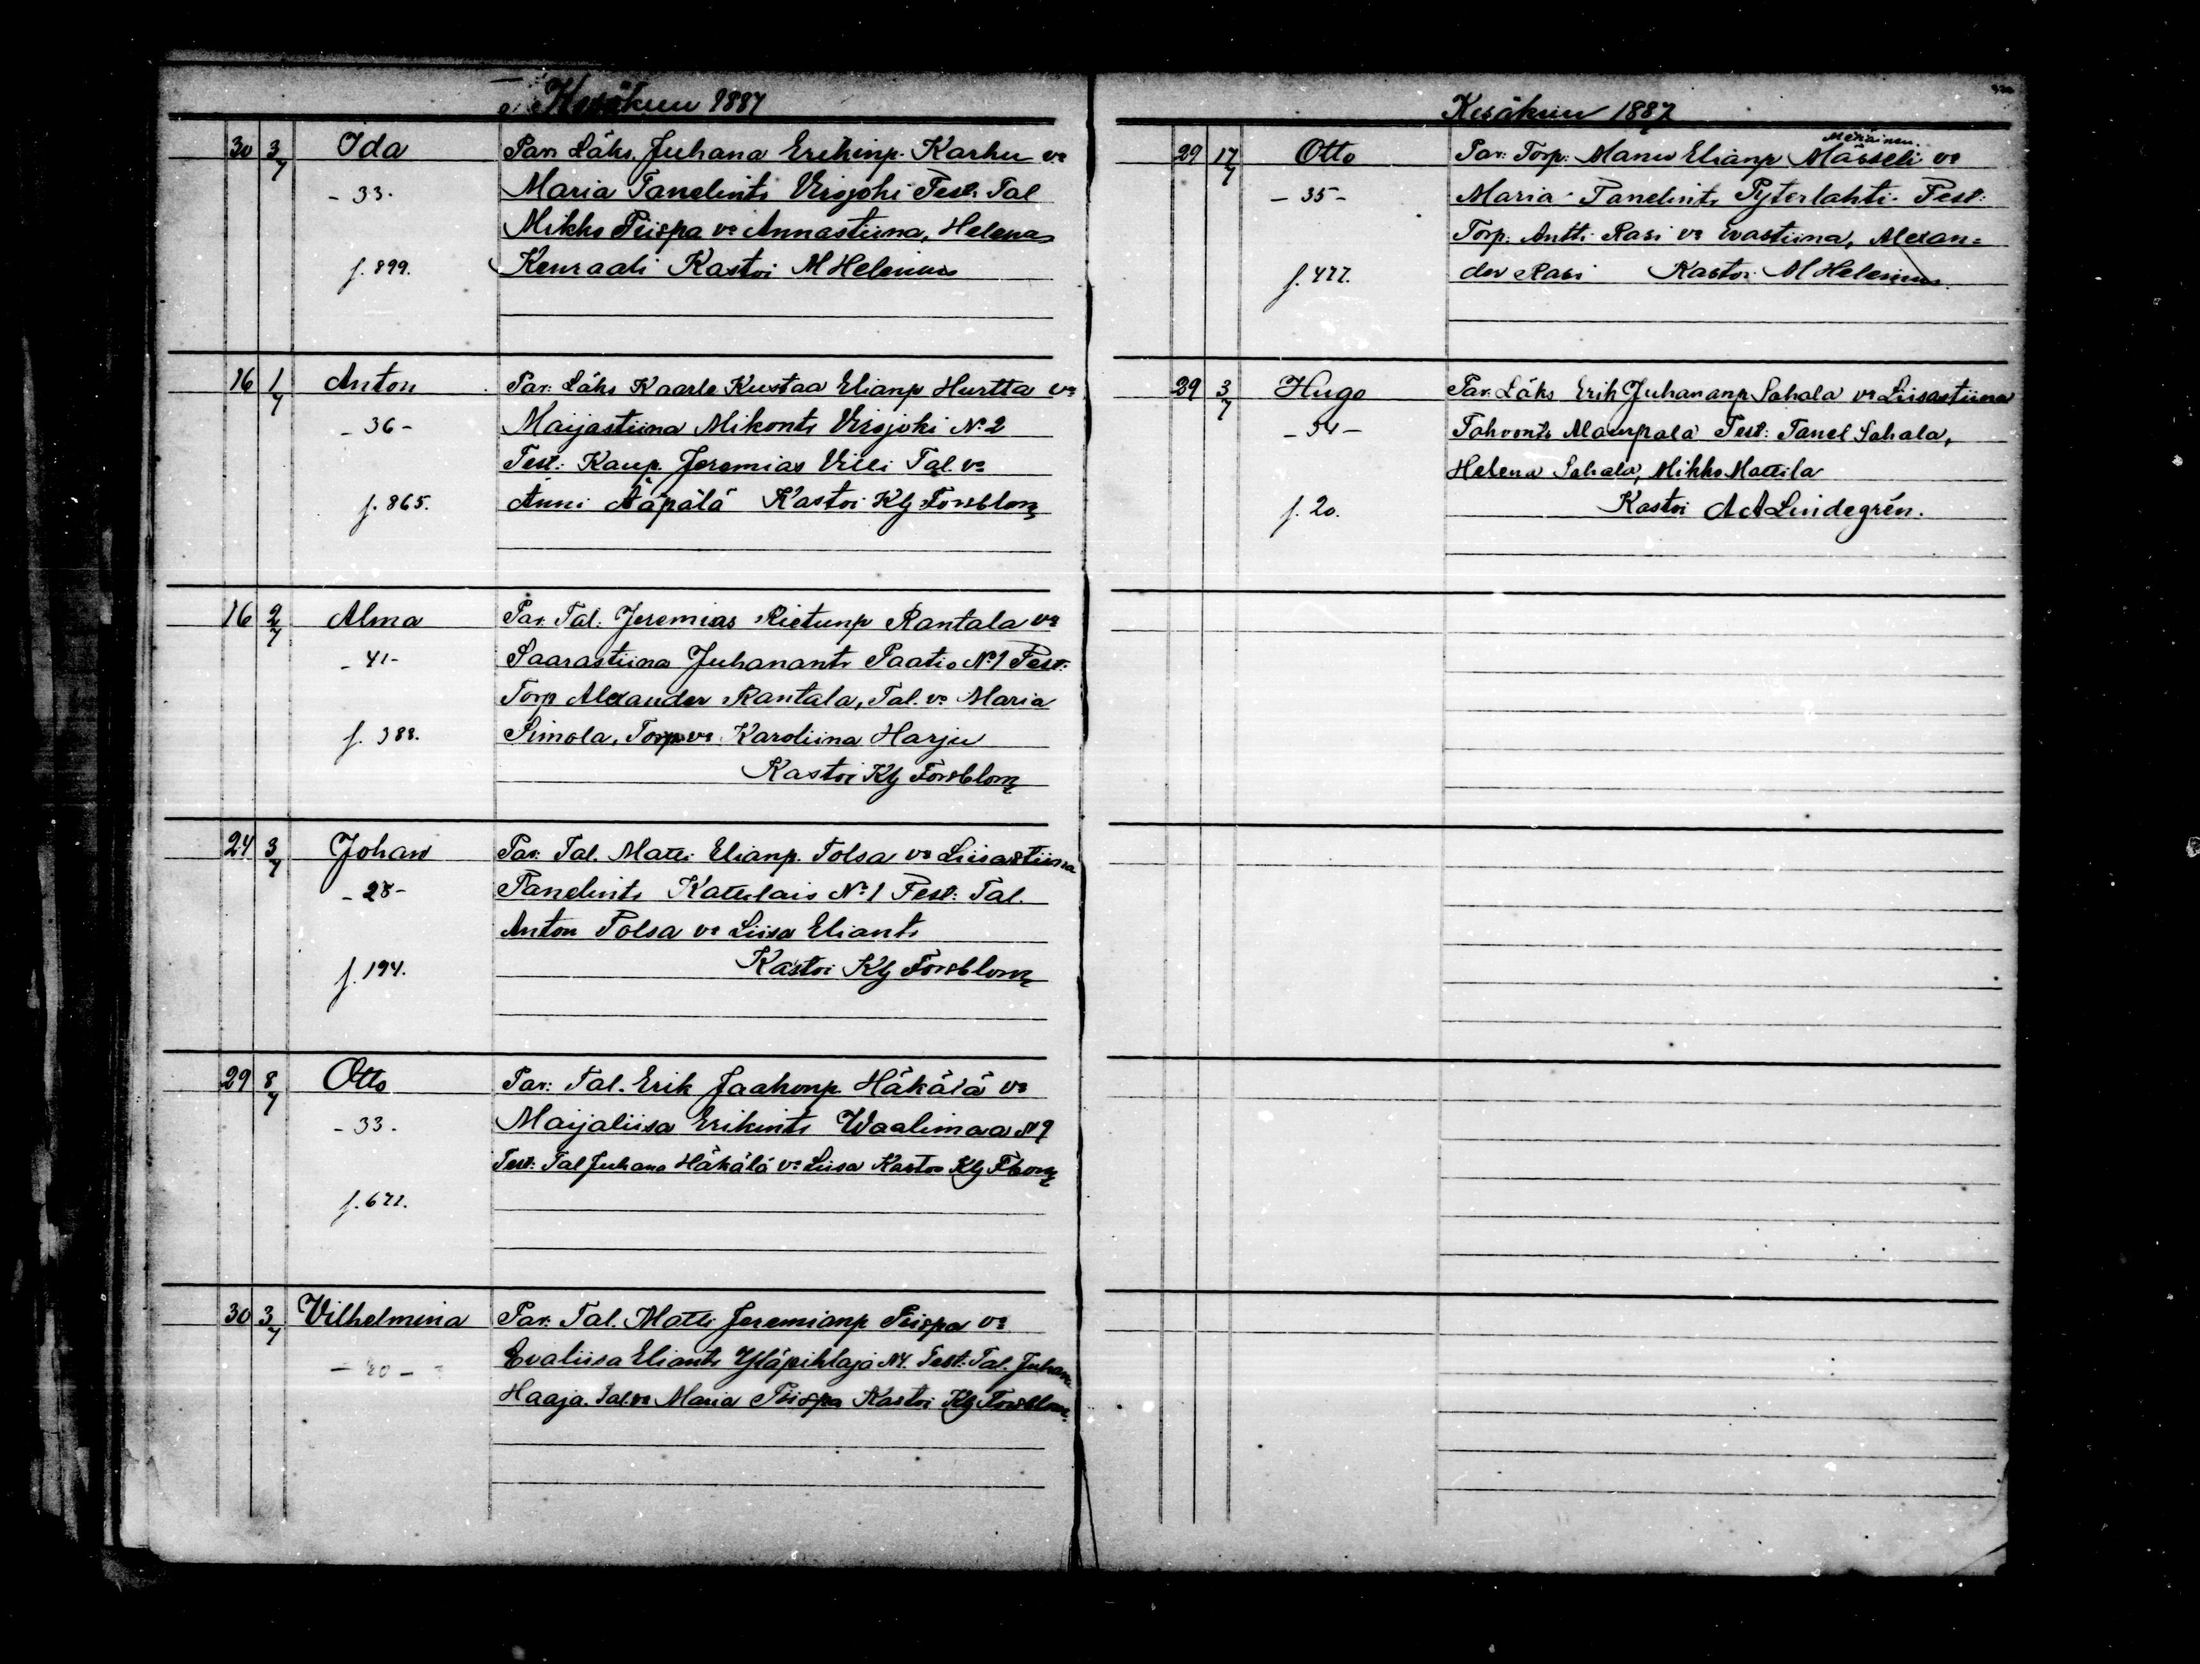 Kesäkuu 1887
30 3/7 Ida Par: Läks. Juhana Erikinp. Karhu vo
- 33 - Maria Tanelints Virojoki Test: Tal
Mikko Piispa vo Annastiina, Helena
f. 899. Kenraali Kastoi M Helenius
16 1/7 Anton Par: Läks Kaarle Kustaa Elianp Hurtta vo
- 36 - Maijastiina Mikonts Virojoki No 2
Test: Kaup. Jeremias Villi Tal. vo
f. 865. Anni Ääpälä Kastoi Klg Forsblom
16 2/7 Alma Par. Tal. Jeremias Rietunp Rantala vo
- 41 - Saarastiina Juhanants Paatio No 1 Test:
Torp Alexander Rantala, Tal. vo Maria
f. 388. Simola, Torp vo Karoliina Harju
Kastoi Klg Forsblom
24 3/7 Johan Par. Tal. Matti Elianp. Tolsa vo Liisastiina
- 28 - Tanelints Kattelais No 1 Test: Tal.
Anton Polsa vo Liisa Eliants
f. 194. Kastoi Klg Forsblom
29 8/7 Otto Par: Tal. Erik Jaakonp. Häkälä vo
- 33 - Maijaliisa Erikints Waalimaa N 9
Test: Tal Juhana Häkälä vo Liisa Kastoi Klg Fblom
f. 671.
30 3/7 Vilhelmina Par. Tal. Matti Jeremianp Piispa vo
Evaliisa Eliants Yläpihlaja N 4. Test: Tal. Juhana
Haaja. Tal. vo Maria Piispa Kastoi Klg Forsblom.
Kesäkuu 1887
Mettäinen.
29 17/7 Otto Par: Torp: Manu Elianp Mässeli vo
- 35 - Maria Tanelints Pyterlahti. Test:
Torp. Antti Rasi vo Evastiina, Alexan=
f. 477. der Rasi Kastoi M Helenius.
29 3/7 Hugo Par. Läks Erik Juhananp Sahala vo Liisastiina
- 34 - Tahvonts Alaurpala Test: Tanel Sahala,
Helena Sahala, Mikko Mattila
f. 20. Kastoi A A Lindegrén.